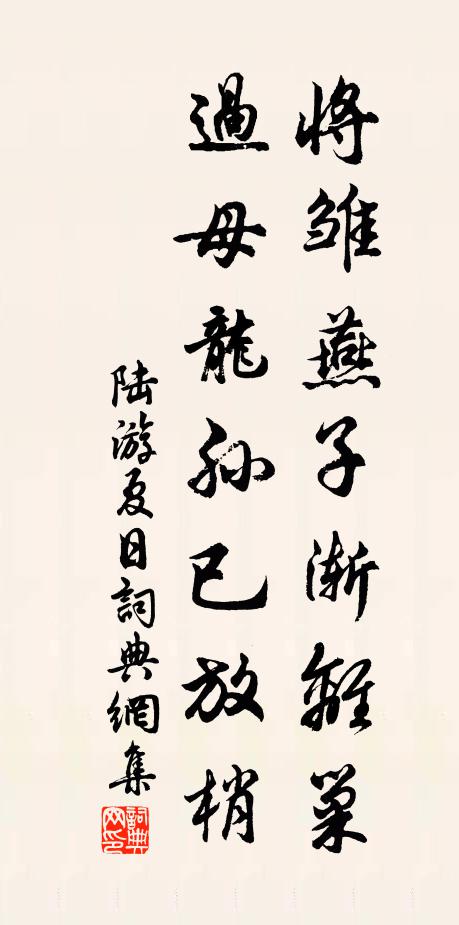 將雛燕子漸離巢
過母龍孫已放梢
陸游夏日詞典網集
詞典網印